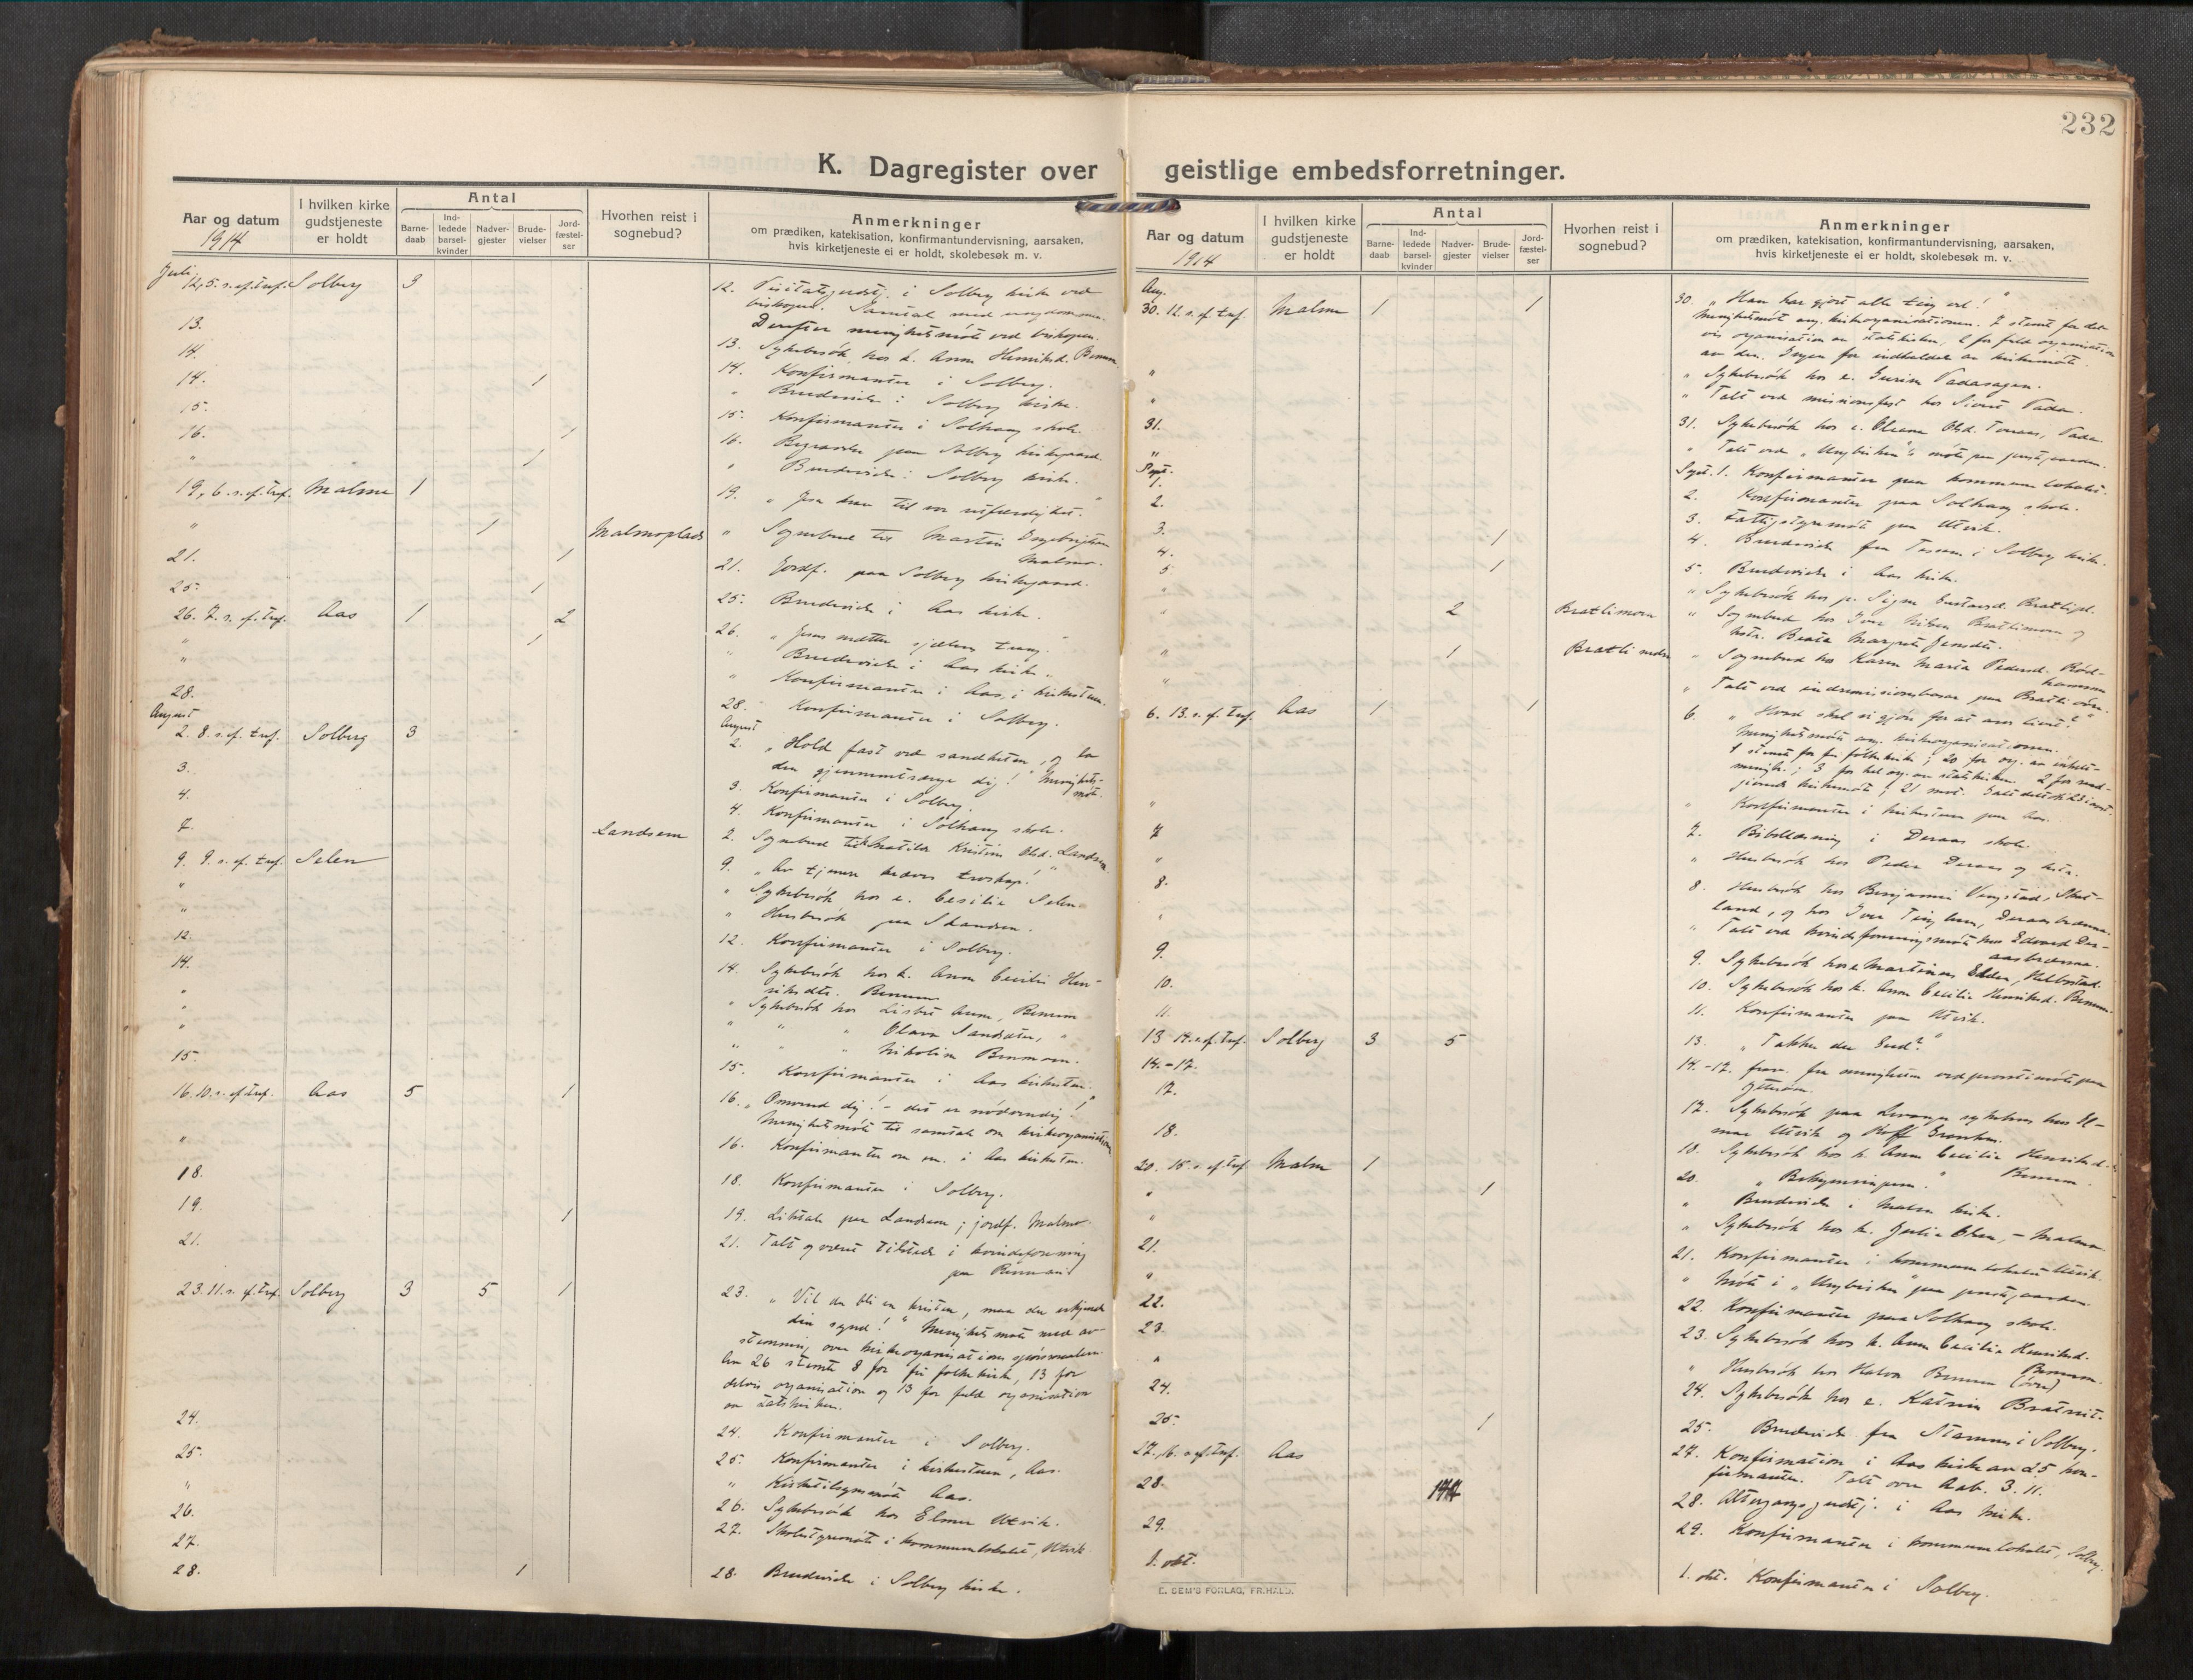 232
K. Dagregister over geistlige embedsforretninger.
Aar og datum
1914
I hvilken kirke
gudstjeneste
er holdt
Antal
Barne-
daab
Ind-
ledede
barsel-
kvinder
Nadver-
gjester
Brude-
vielser
Jord-
fæstel-
ser
Hvorhen reist i
sognebud?
Anmerkninger
om prædiken, katekisation, konfirmantundervisning, aarsaken,
hvis kirketjeneste ei er holdt, skolebesøk m. v.
Juli
12, 5. s. ef. tref. Solberg 3
12. Visitatsgudstj. i Solberg kirke ved
biskopen. Samtal med ungdommen.
Derefter menighetsmöte ved biskopen.
13.
13. Sykebesök hos k. Anna Henriksd. Benum
14.
14. Konfirmanter i Solberg.
14. 1
" Brudevielse i Solberg kirke.
15.
15. Konfirmanter i Solhaug skole.
16. 1
16. Begravelse paa Solberg kirkegaard.
" 1
" Brudevielse i Solberg kirke.
19, 6. s. ef. tref. Malmo 1
19. "Jesu krav til vor retfærdighet."
" 1 Malmoplads
" Sognebud til Martin Engebrigtsen
Malmo.
21. 1
21. Jordf. paa Solberg kirkegaard.
25. 1
25. Brudevielse i Aas kirke.
26. 7. s. ef. tref. Aas 1 2
26. "Jesus mætter sjælens trang."
" 1
" Brudevielse i Aas kirke.
"
" Konfirmanter i Aas, i kirkestuen.
28.
28. Konfirmanter i Solberg.
August
2. 8. s. ef. tref. Solberg 3
August
2. "Hold fast ved sandheten, og la
den gjennemtrænge dig!" Menighets-
möte.
3.
3. Konfirmanter i Solberg.
4.
4. Konfirmanter i Solhaug skole.
7. Landsem
7. Sognebud til Matilde Kristine Olsd. Landsem
9. 9. s. ef. tref. Selen
9. "Av tjenere kræves troskap!"
"
" Sykebesök hos e. Cesilie Selen
"
" Husbesök paa
12.
12. Konfirmanter i Solberg.
14.
14. Sykebesök hos k. Anna Cecilie Hen-
riksdtr. Benum
"
" Sykebesök hos Lisbet Anna, Benum
"
" " " Olava Sandsæter, "
"
" " " Nikoline Benmoen.
15.
15. Konfirmanter i Aas kirkestue.
16. 10. s. ef. tref. Aas 5 1
16. "Omvend dig! - det er nödvendig!"
Menighetsmöte til samtale om kirkeorganisation
"
16. Konfirmanter om em. i Aas kirkestue.
18.
18. Konfirmanter i Solberg.
19. 1
19. Liktale paa Landsem; jordf. Malmo.
21.
21. Talt og været tilstede i kvindeforening
paa
23. 11. s. ef. tref. Solberg 3 5 1
23. "Vil du bli en kristen, maa du erkjende
din synd!" Menighetsmöte med av-
stemning over kirkeorganisations spörsmaalene.
Av 26 stemte 8 for fri folkekirke, 13 for
delvis organisation og 13 for fuld organisation
av statskirken.
24.
24. Konfirmanter i Solberg.
25.
25. Konfirmanter i kirkestuen, Aas.
"
" Kirketilsynsmöte Aas.
26.
26. Sykebesök hos Elmer Utvik.
27.
27. Skolestyremöte i kommunelokalet, Utvik
28. 1
28. Brudevielse i Solberg kirke.
Aar og datum
1914
I hvilken kirke
gudstjeneste
er holdt
Antal
Barne-
daab
Ind-
ledede
barsel-
kvinder
Nadver-
gjester
Brude-
vielser
Jord-
fæstel-
ser
Hvorhen reist i
sognebud?
Anmerkninger
om prædiken, katekisation, konfirmantundervisning, aarsaken,
hvis kirketjeneste ei er holdt, skolebesøk m. v.
Aug.
30. 12. s. ef. tref. Malmo 1 1
30. "Han har gjort alle ting vel!"
Menighetsmöte ang. kirkeorganisationen. 7 stemte for del-
vis organisation av statskirken, for fuld organisation
av den. Ingen for indkaldelse av kirkemöte.
"
" Sykebesök hos e. Gurine Vadasagen.
"
" Talt ved missionsfest hos Sivert Vada.
31.
31. Sykebesök hos e. Oleana Olsd. Vada
"
" Talt ved "Ungbirken"s möte paa prestgaarden.
Sept.
1.
Sept. 1. Konfirmanter paa kommunelokalet.
2.
2. Konfirmanter paa Solhaug skole.
3.
3. Fattigstyremöte paa Utvik.
4. 1
4. Brudevielse fra i Solberg kirke.
5. 1
5. Brudevielse i Aas kirke.
"
" Sykebesök hos p. Signe Gustavsd. Bratlipl.
" 2 Bratlimoen
" Sognebud hos Iver Nilsen Bratlimoen og
hstr. Beata Margrete Jensdtr.
" 1 Bratli nedre
" Sognebud hos Karen Maria Pedersd. Röd-
hammer
"
" Talt ved indremissionsbasar paa Bratli övre.
6. 13. s. ef. tref. Aas 1 1
6. "Hvad skal vi gjöre for at arve livet?"
Menighetsmöte ang. kirkeorganisationen.
1 stemt for fri folkekirke; 20 for org. av enkelt-
menigh.; 3 for hel org. av statskirken. 2 for raad-
givende kirkemöte; 21 mot.
"
" Konfirmanter i kirkestuen paa Aas.
7
7. Bibellæsning i Deraas skole.
"
" Husbesök hos Peder Deraas og hstr.
8.
8. Husbesök hos Benjamin Vengstad, Skot-
land, og hos Iver Deraasbrænna.
"
" Talt ved kvindeforeningsmöte hos Edvard Der-
aasbrænna.
9.
9. Sykebesök hos e Martinus Elden, Helbostad.
10.
10. Sykebesök hos k. Anna Cecilie Henriksd. Benum
11.
11. Konfirmanter paa Utvik.
13 14. s. ef. tref. Solberg 3 5
13. "Takker du Gud?"
14.-17.
14.-17. frav. fra menigheten ved prostimöte paa
Ytteröen.
17.
17. Sykebesök paa Levanger sykehus hos El-
mer Utvik og Roff
18.
18. Sykebesök hos k. Anna Cecilie Henriksd.
Benum.
20. 15. s. ef. tref. Malm 1
20. "Bekymringen."
" 1
" Brudevielse i Malm kirke.
"
" Sykebesök hos k. Julie Olsen, - Malmo.
21.
21. Konfirmanter i kommunelokalet Utvik.
"
" Möte i "Ungbirken" paa prestgaarden.
22.
22. Konfirmanter paa Solhaug skole.
23.
23. Sykebesök hos k. Anna Cecilie Henriksd.
Benum.
"
" Husbesök hos Halvor Benum (övre)
24.
24. Sykebesök hos e. Katrine Bratreit.
25. 1
25. Brudevielse fra Stamnes i Solberg.
27. 16. s. ef. tref. Aas
27. Konfirmation i Aas kirke av 25 kon-
firmanter. Talt over Aab. 3. 11.
28.
28. Altergangsgudstj. i Aas kirke.
29.
29. Konfirmanter i kommunelokalet, Solberg.
1. okt.
1. okt. Konfirmanter i Solberg.
E. SEM'S FORLAG, FR.HALD.